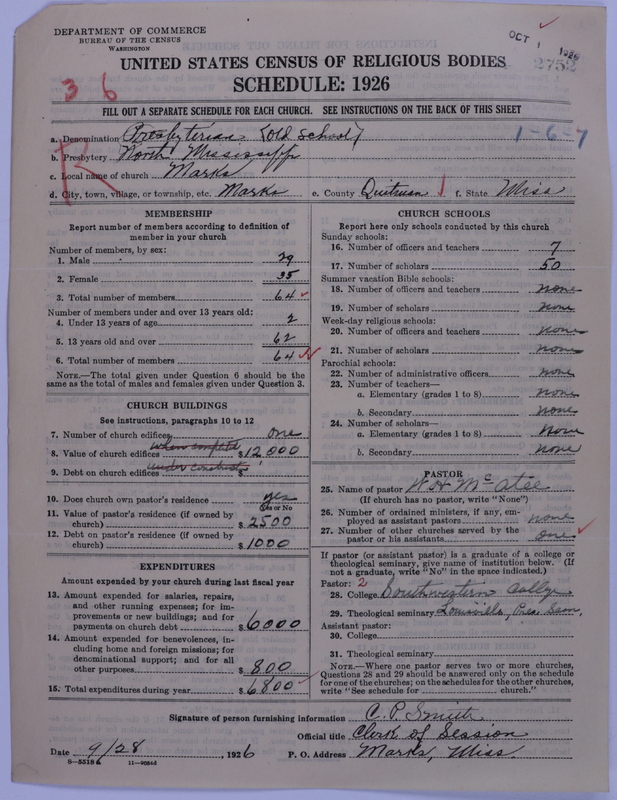 DEPARTMENT OF COMMERCE
BUREAU OF THE CENSUS
WASHINGTON
OCT 1 1926
2752
UNITED STATES CENSUS OF RELIGIOUS BODIES
SCHEDULE: 1926
3 6
FILL OUT A SEPARATE SCHEDULE FOR EACH CHURCH. SEE INSTRUCTIONS ON THE BACK OF THIS SHEET
a. Denomination Presbyterian (Old School) 1-6-7
b. Presbytery North Mississippi
R
c. Local name of church Marks
d. City, town, village, or township, etc. Marks e. County Quitman f. State Miss
MEMBERSHIP
Report number of members according to definition of
member in your church
Number of members, by sex:
1. Male 29
2. Female 35
3. Total number of members 64
Number of members under and over 13 years old:
4. Under 13 years of age 2
5. 13 years old and over 62
6. Total number of members 64
NOTE.—The total given under Question 6 should be
same as the total of males and females given under Question 3.
CHURCH BUILDINGS
See instructions, paragraphs 10 to 12
7. Number of church edifices one
when complete
8. Value of church edifices $12,000
under construction
9. Debt on church edifices $
10. Does church own pastor's residence yes
Yes or No
11. Value of pastor's residence (if owned by
church) $2500
12. Debt on pastor's residence (if owned by
church) $1000
EXPENDITURES
Amount expended by your church during last fiscal year
13. Amount expended for salaries, repairs,
and other running expenses; for im-
provements or new buildings; and for
payments on church debt $6000
14. Amount expended for benevolences, in-
cluding home and foreign missions; for
denominational support; and for all
other purposes $800
15. Total expenditures during year $6800
CHURCH SCHOOLS
Report here only schools conducted by this church
Sunday schools:
16. Number of officers and teachers 7
17. Number of scholars 50
Summer vacation Bible schools:
18. Number of officers and teachers none
19. Number of scholars none
Week-day religious schools:
20. Number of officers and teachers none
21. Number of scholars none
Parochial schools:
22. Number of administrative officers none
23. Number of teachers—
a. Elementary (grades 1 to 8) none
b. Secondary none
24. Number of scholars—
a. Elementary (grades 1 to 8) none
b. Secondary none
PASTOR
25. Name of pastor W H McAtee
(If church has no pastor, write "None")
26. Number of ordained ministers, if any, em-
ployed as assistant pastors none
27. Number of other churches served by the
pastor or his assistants one
If pastor (or assistant pastor) is a graduate of a college or
theological seminary, give name of institution below. (If
not a graduate, write "No" in the space indicated.)
Pastor: 2
28. College Southwestern College
29. Theological seminary Louisville, Pres. Sem,
Assistant pastor:
30. College
31. Theological seminary
NOTE.—Where one pastor serves two or more churches,
Questions 28 and 29 should be answered only on the schedule
for one of the churches; on the schedules for the other churches,
write "See schedule for church."
Signature of person furnishing information C. P. Smith
Official title Clerk of Session
Date 9/28, 1926 P. O. Address Marks, Miss.